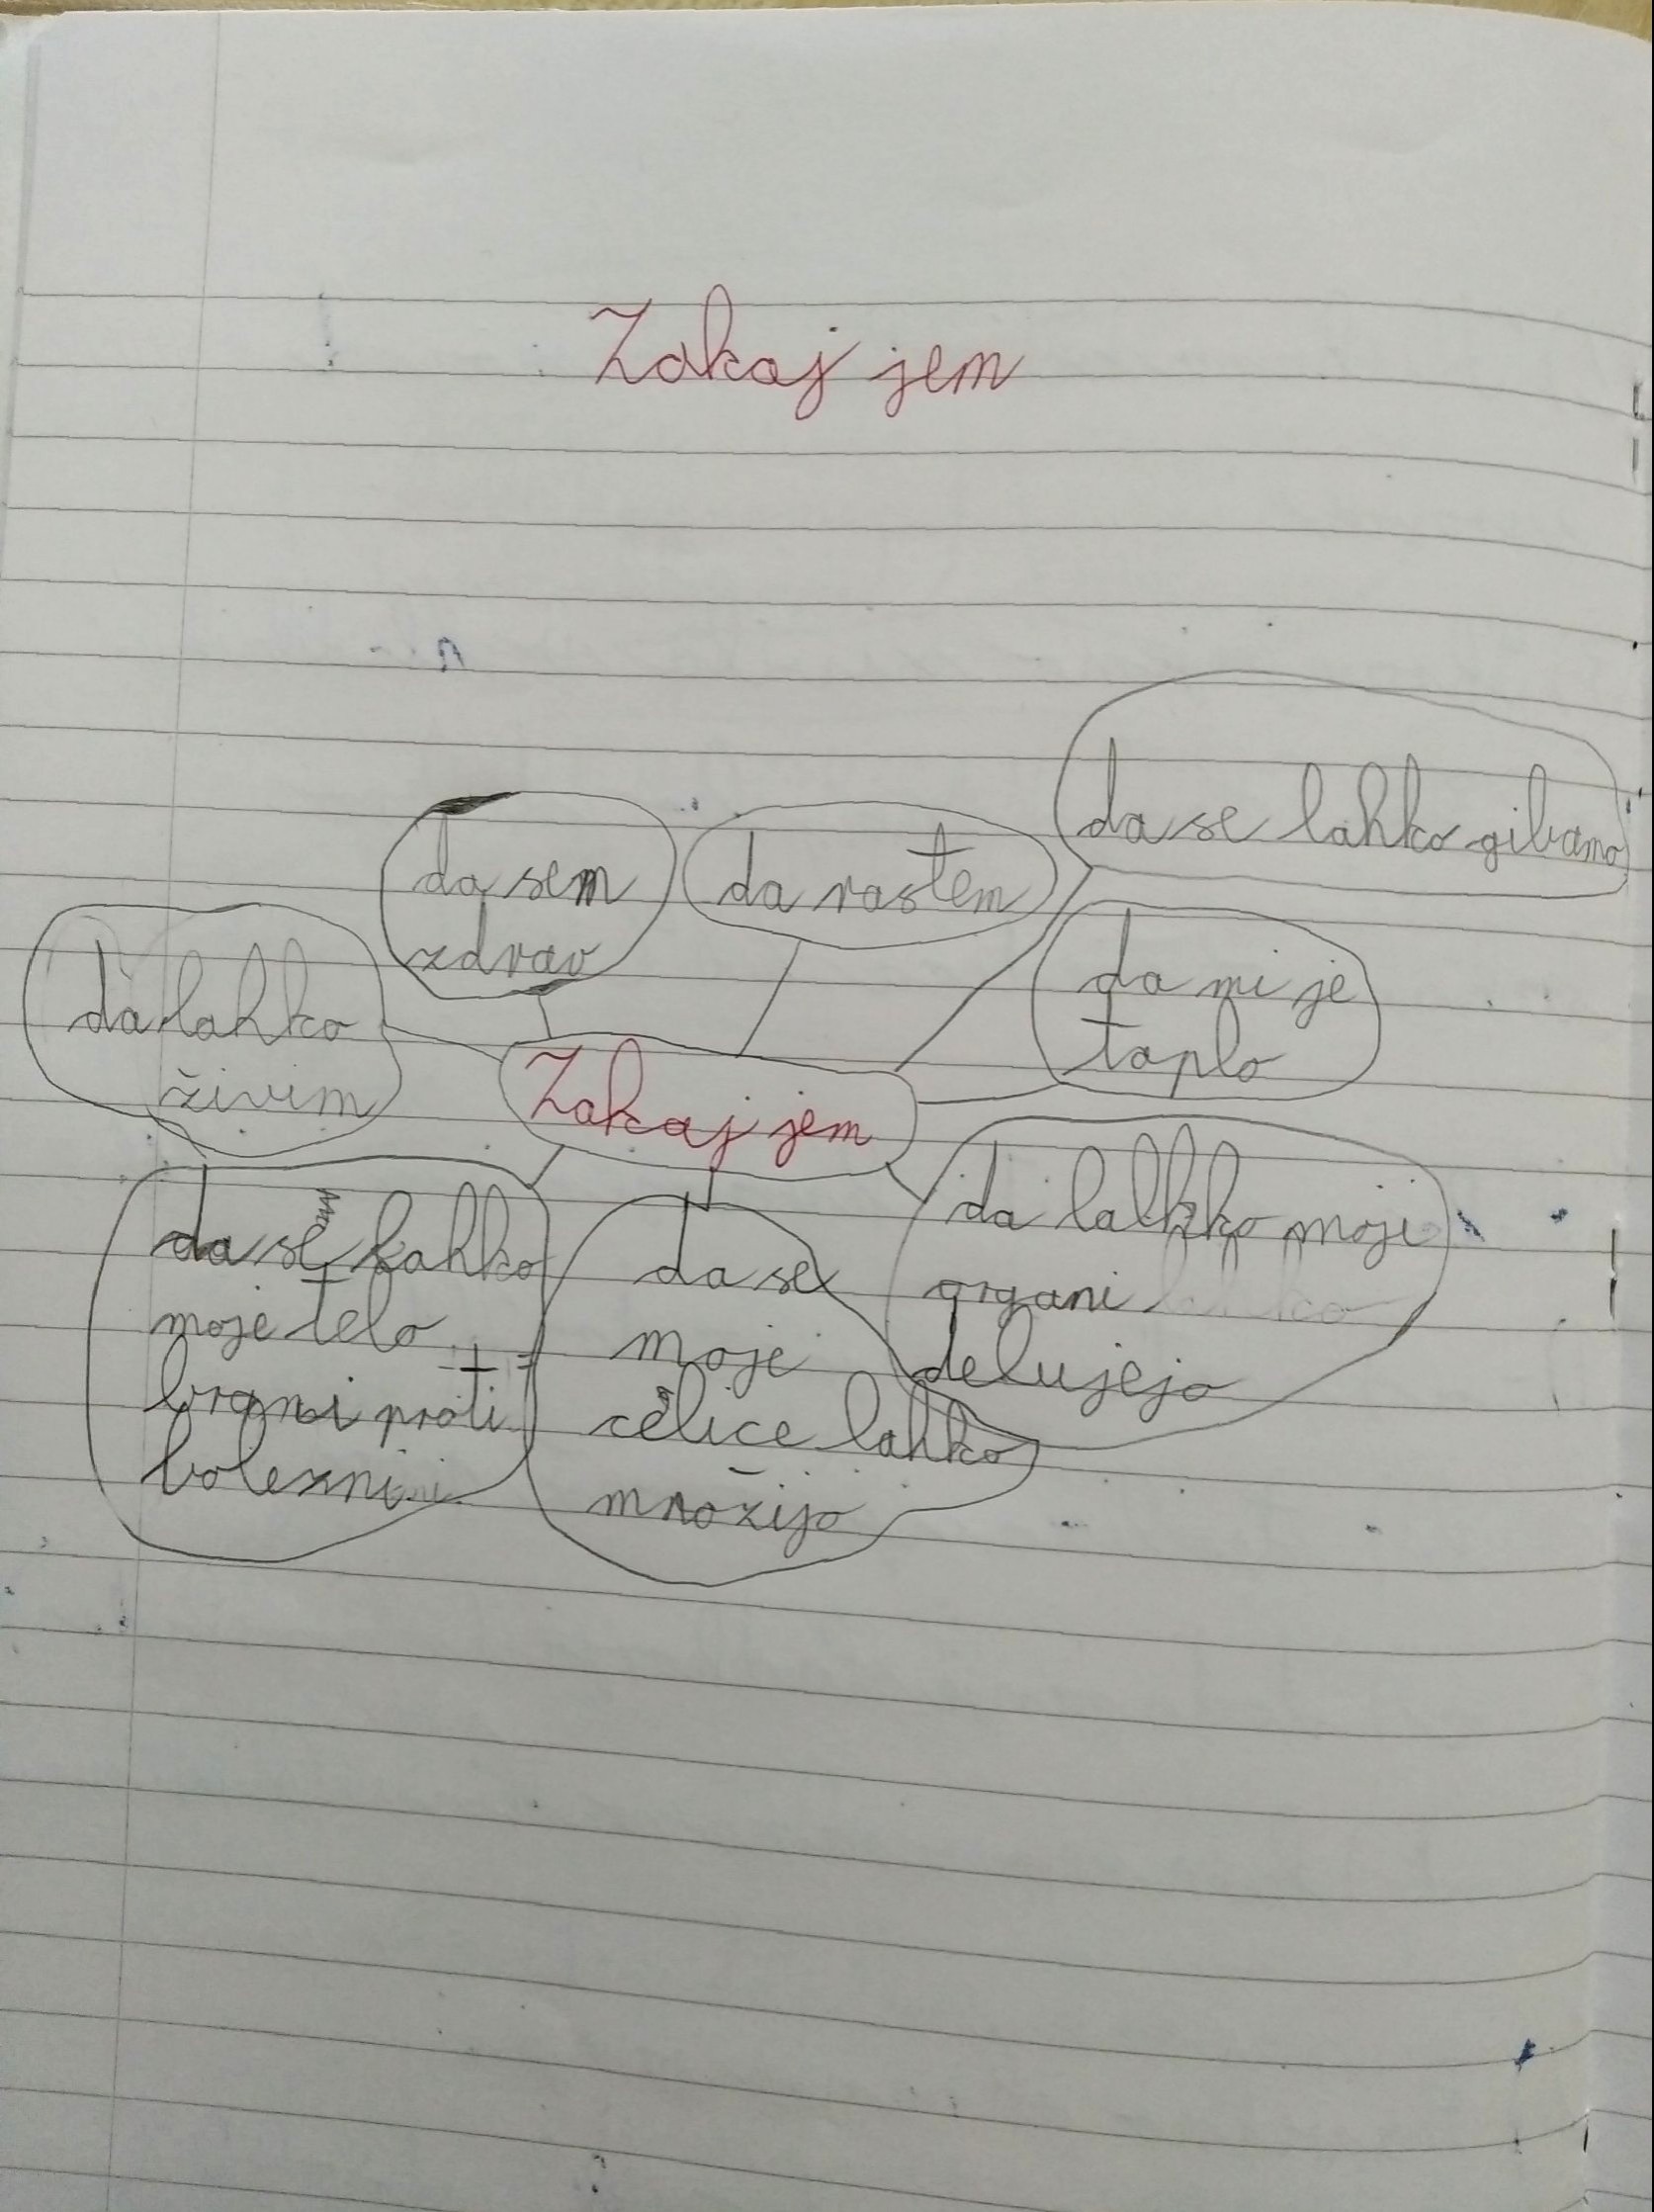 Zakaj jem
da se lahko gibamo
da sem
zdrav
da rastem
da mi je
taplo
da lahko
živim
Zakaj jem
da lahko moji
organi
delujejo
da se lahko
moje telo
brani proti
bolezni
da se
moje
celice lahko
množijo